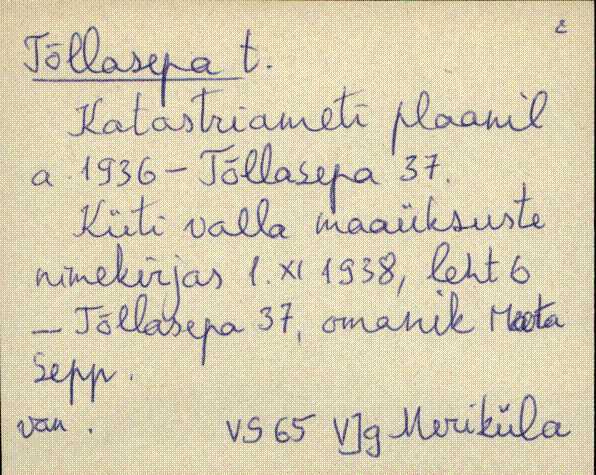 Tõllasepa t.
Katastriameti plaanil
a 1936 – Tõllasepa 37.
Küti valla maaüksuste
nimekirjas 1. XI 1938, leht 6
– Tõllasepa 37, omanik Meeta
Sepp.
van. VS 65 VJg Meriküla